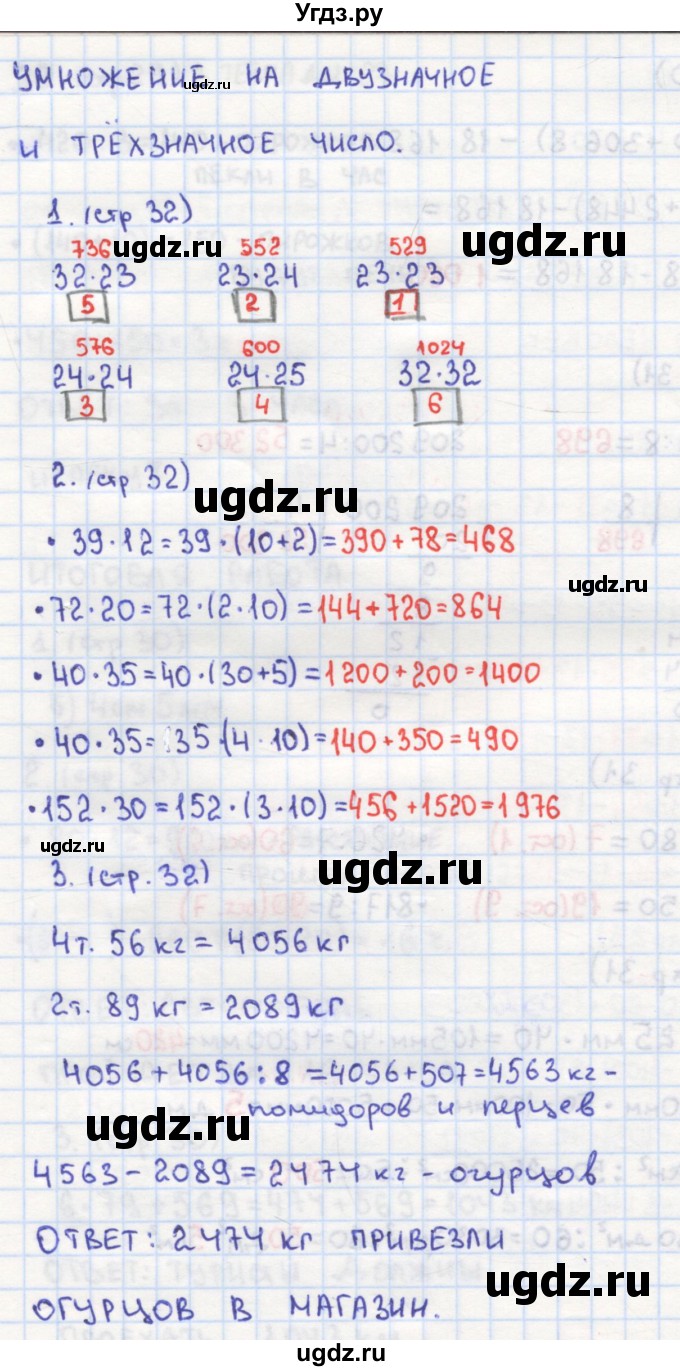 Угдз.ру
УМНОЖЕНИЕ НА ДВУЗНАЧНОЕ
И ТРЁХЗНАЧНОЕ ЧИСЛО.
1. (стр 32)
736 552 529
32·23 23·24 23·23
5 2 1
576 600 1024
24·24 24·25 32·32
3 4 6
2. (стр 32)
· 39·12=39·(10+2)=390+78=468
· 72·20=72·(2·10)=144+720=864
· 40·35=40·(30+5)=1200+200=1400
· 40·35=35·(4·10)=140+350=490
· 152·30=152·(3·10)=456+1520=1976
3. (стр. 32)
4т. 56 кг = 4056 кг
2т. 89 кг = 2089 кг
4056+4056:8=4056+507=4563 кг -
помидоров и перцев
4563-2089=2474 кг - огурцов
ОТВЕТ: 2474 кг ПРИВЕЗЛИ
ОГУРЦОВ В МАГАЗИН.
ugdz.ru
ugdz.ru
ugdz.ru
ugdz.ru
ugdz.ru
ugdz.ru
ugdz.ru
ugdz.ru
ugdz.ru
ugdz.ru
ugdz.ru